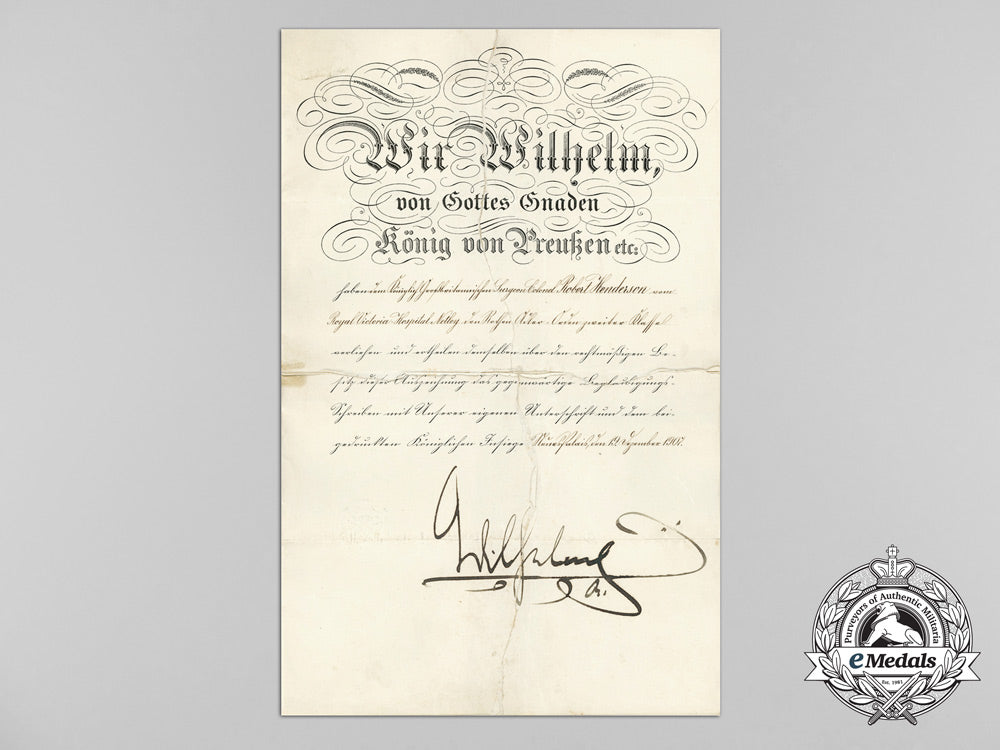 Wir Wilhelm,
von Gottes Gnaden
König von Preußen etc:
haben dem Königlich Großbritannischen Surgeon Colonel Robert Henderson vom
Royal Victoria Hospital Netley den Rothen Adler-Orden zweiter Klasse
verliehen und ertheilen demselben über den rechtmäßigen Be-
sitz dieser Auszeichnung das gegenwärtige Beglaubigungs-
Schreiben mit Unserer eigenen Unterschrift und dem bei-
gedruckten Königlichen Insiegel. Neues Palais, den 12. Dezember 1900.
Wilhelm
R.
Purveyors of Authentic Militaria
eMedals
Est. 1981